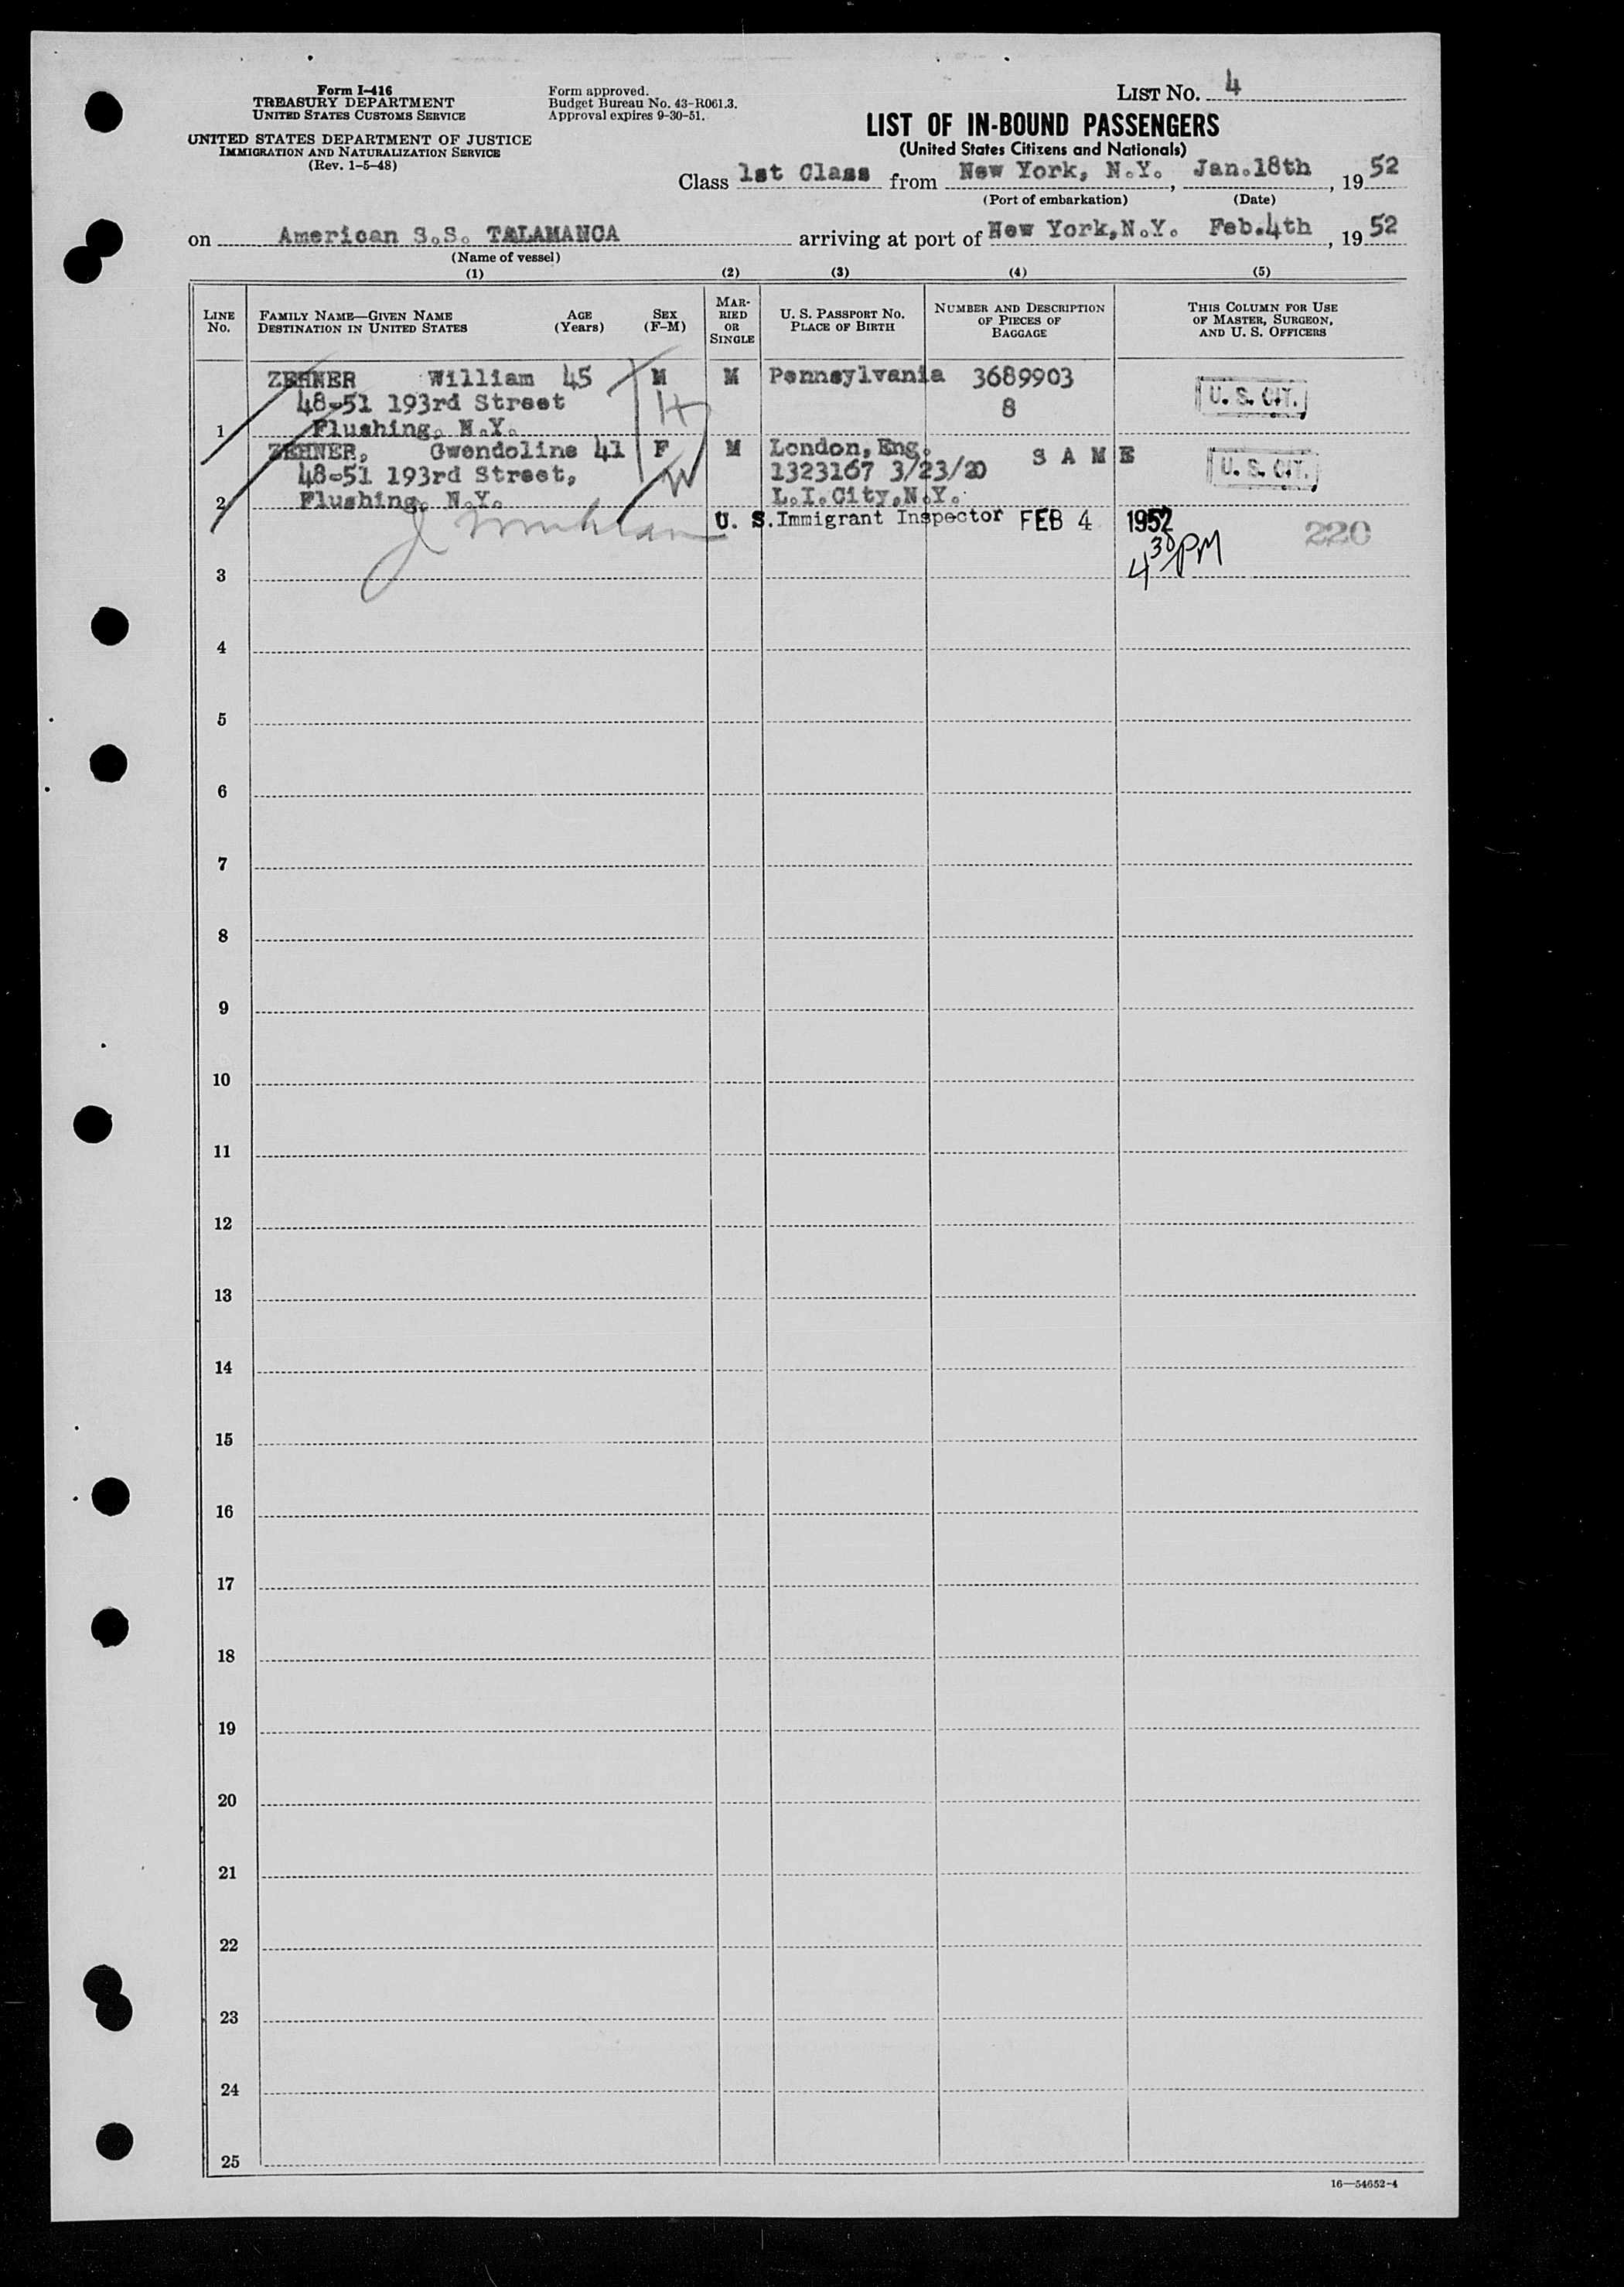 Form I-416
TREASURY DEPARTMENT
UNITED STATES CUSTOMS SERVICE
UNITED STATES DEPARTMENT OF JUSTICE
IMMIGRATION AND NATURALIZATION SERVICE
(Rev. 1-5-48)
Form approved.
Budget Bureau No. 43-R061.3.
Approval expires 9-30-51.
LIST No. 4
LIST OF IN-BOUND PASSENGERS
(United States Citizens and Nationals)
Class 1st Class from New York, N.Y., Jan.18th, 1952
(Port of embarkation) (Date)
on American S.S. TALAMANCA arriving at port of New York,N.Y. Feb.4th, 1952
(Name of vessel)
(1) (2) (3) (4) (5)
LINE No. FAMILY NAME—GIVEN NAME DESTINATION IN UNITED STATES AGE (Years) SEX (F-M) MARRIED OR SINGLE U. S. PASSPORT No. PLACE OF BIRTH NUMBER AND DESCRIPTION OF PIECES OF BAGGAGE THIS COLUMN FOR USE OF MASTER, SURGEON, AND U. S. OFFICERS
ZEHNER William 45 M M Pennsylvania 3689903 U. S. CIT.
48-51 193rd Street H 8
1 Flushing, N.Y.
ZEHNER, Gwendoline 41 F M London, Eng. SAME U. S. CIT.
48-51 193rd Street, W 1323167 3/23/20
2 Flushing, N.Y. L.I.City,N.Y.
U. S. Immigrant Inspector FEB 4 1952 220
4 30 PM
3
4
5
6
7
8
9
10
11
12
13
14
15
16
17
18
19
20
21
22
23
24
25
16—54652-4